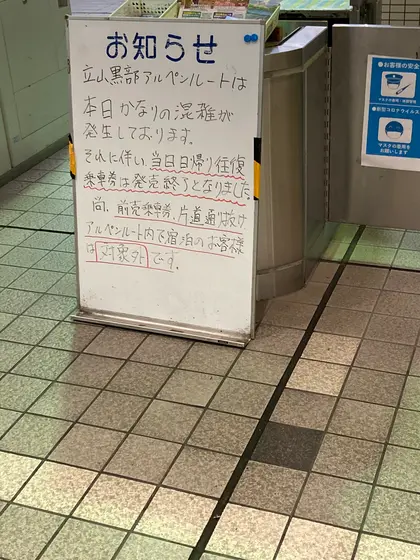 お知らせ
立山黒部アルペンルートは
本日かなりの混雑が
発生しております。
それに伴い、当日日帰り往復
乗車券は発売終了となりました。
尚、前売乗車券、片道通り抜け
アルペンルート内で宿泊のお客様
は対象外です。
●お客様の安全
●新型コロナウイルス
マスクの着用を
お願いします